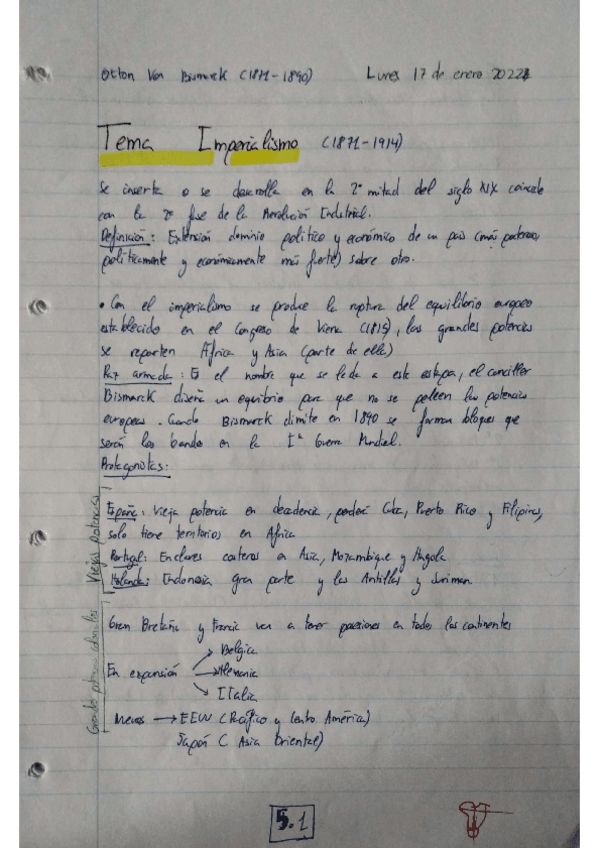 Otton Von Bismarck (1871-1890) Lunes 17 de enero 2022
Tema Imperialismo (1871-1914)
Se inserta o se desarrolla en la 2ª mitad del siglo XIX coincide
con la 2ª fase de la Revolución Industrial.
Definición: Extensión dominio político y económico de un país (más poderoso,
políticamente y económicamente más fuerte) sobre otro.
• Con el imperialismo se produce la ruptura del equilibrio europeo
establecido en el Congreso de Viena (1815), las grandes potencias
se reparten África y Asia (parte de ella)
Paz armada: Es el nombre que se le da a esta estapa, el canciller
Bismarck diseña un equilibrio para que no se peleen las potencias
europeas. Cuando Bismarck dimite en 1890 se forman bloques que
serán los bandos en la Iª Guerra Mundial.
Protagonistas:
Viejas potencias
España: Vieja potencia en decadencia, perderá Cuba, Puerto Rico y Filipinas,
solo tiene territorios en África
Portugal: Enclaves costeros en Asia, Mozambique y Angola
Holanda: Indonesia gran parte y las Antillas y Surinam
Grandes potencias coloniales
Gran Bretaña y Francia van a tener posesiones en todos los continentes
En expansión → Bélgica
→ Alemania
→ Italia
Nuevas → EEUU (Pacífico y Centro América)
Japón (Asia Oriental)
5.1